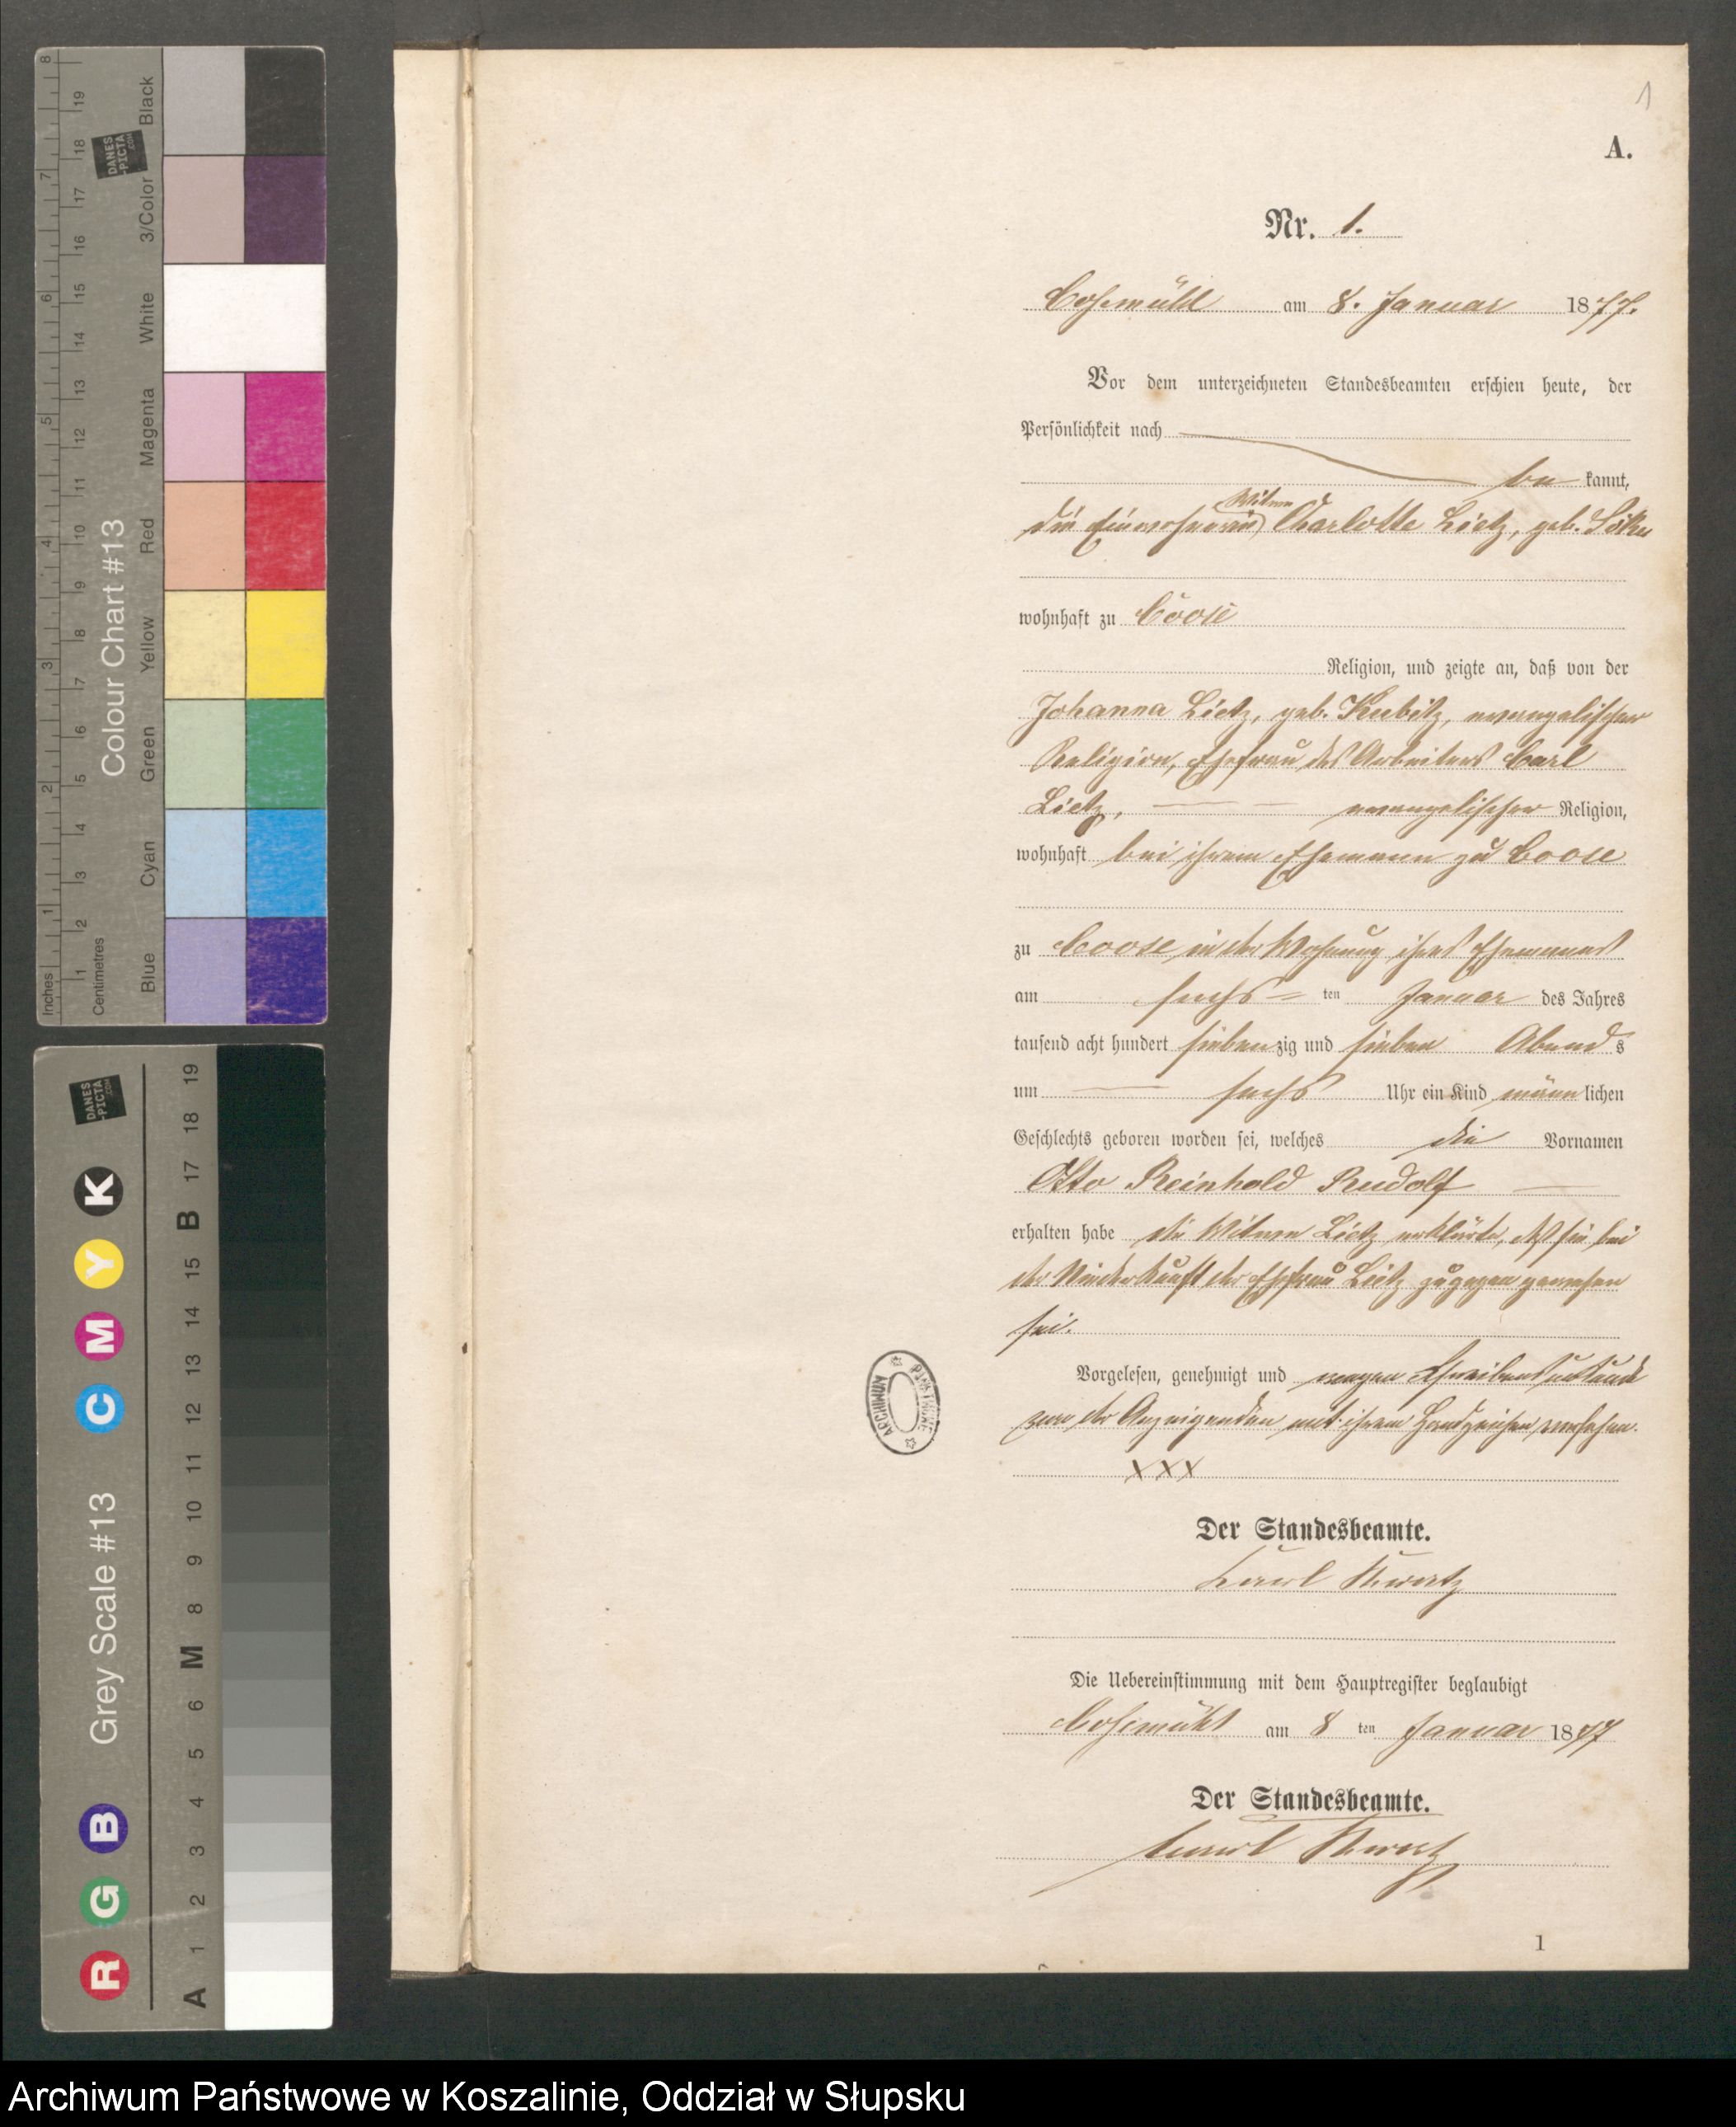 1
A.
Nr. 1.
Cosemühl am 8. Januar 1877.
Vor dem unterzeichneten Standesbeamten erschien heute, der
Persönlichkeit nach
be kannt,
Witwe
die Einwohnerin Charlotte Lietz, geb.
wohnhaft zu Coose
Religion, und zeigte an, daß von der
Johanna Lietz, geb. Kubitz, evangelischer
Religion, Ehefrau des Arbeiters Carl
Lietz, evangelischer Religion,
wohnhaft bei ihrem Ehemann zu Coose
zu Coose in der Wohnung ihres Ehemannes
am sechs ten Januar des Jahres
tausend acht hundert siebenzig und sieben Abends
um sechs Uhr ein Kind männlichen
Geschlechts geboren worden sei, welches die Vornamen
Otto Reinhold Rudolf
erhalten habe die Witwe Lietz erklärte, daß sie bei
der Niederkunft der Ehefrau Lietz zugegen gewesen
sei.
Vorgelesen, genehmigt und wegen Schreibensunkunde
von der Anzeigenden mit ihrem Handzeichen versehen.
XXX
Der Standesbeamte.
Die Uebereinstimmung mit dem Hauptregister beglaubigt
Cosemühl am 8 ten Januar 1877
Der Standesbeamte.
1
ARCHIWUM PAŃSTWOWE
Colour Chart #13
Blue Cyan Green Yellow Red Magenta White 3/Color Black
Inches 1 2 3 4 5 6 7 8
Centimetres 1 2 3 4 5 6 7 8 9 10 11 12 13 14 15 16 17 18 19
DANES-PICTA.COM
Grey Scale #13
R G B C M Y K
A 1 2 3 4 5 6 M 8 9 10 11 12 13 14 15 B 17 18 19
DANES-PICTA.COM
Archiwum Państwowe w Koszalinie, Oddział w Słupsku